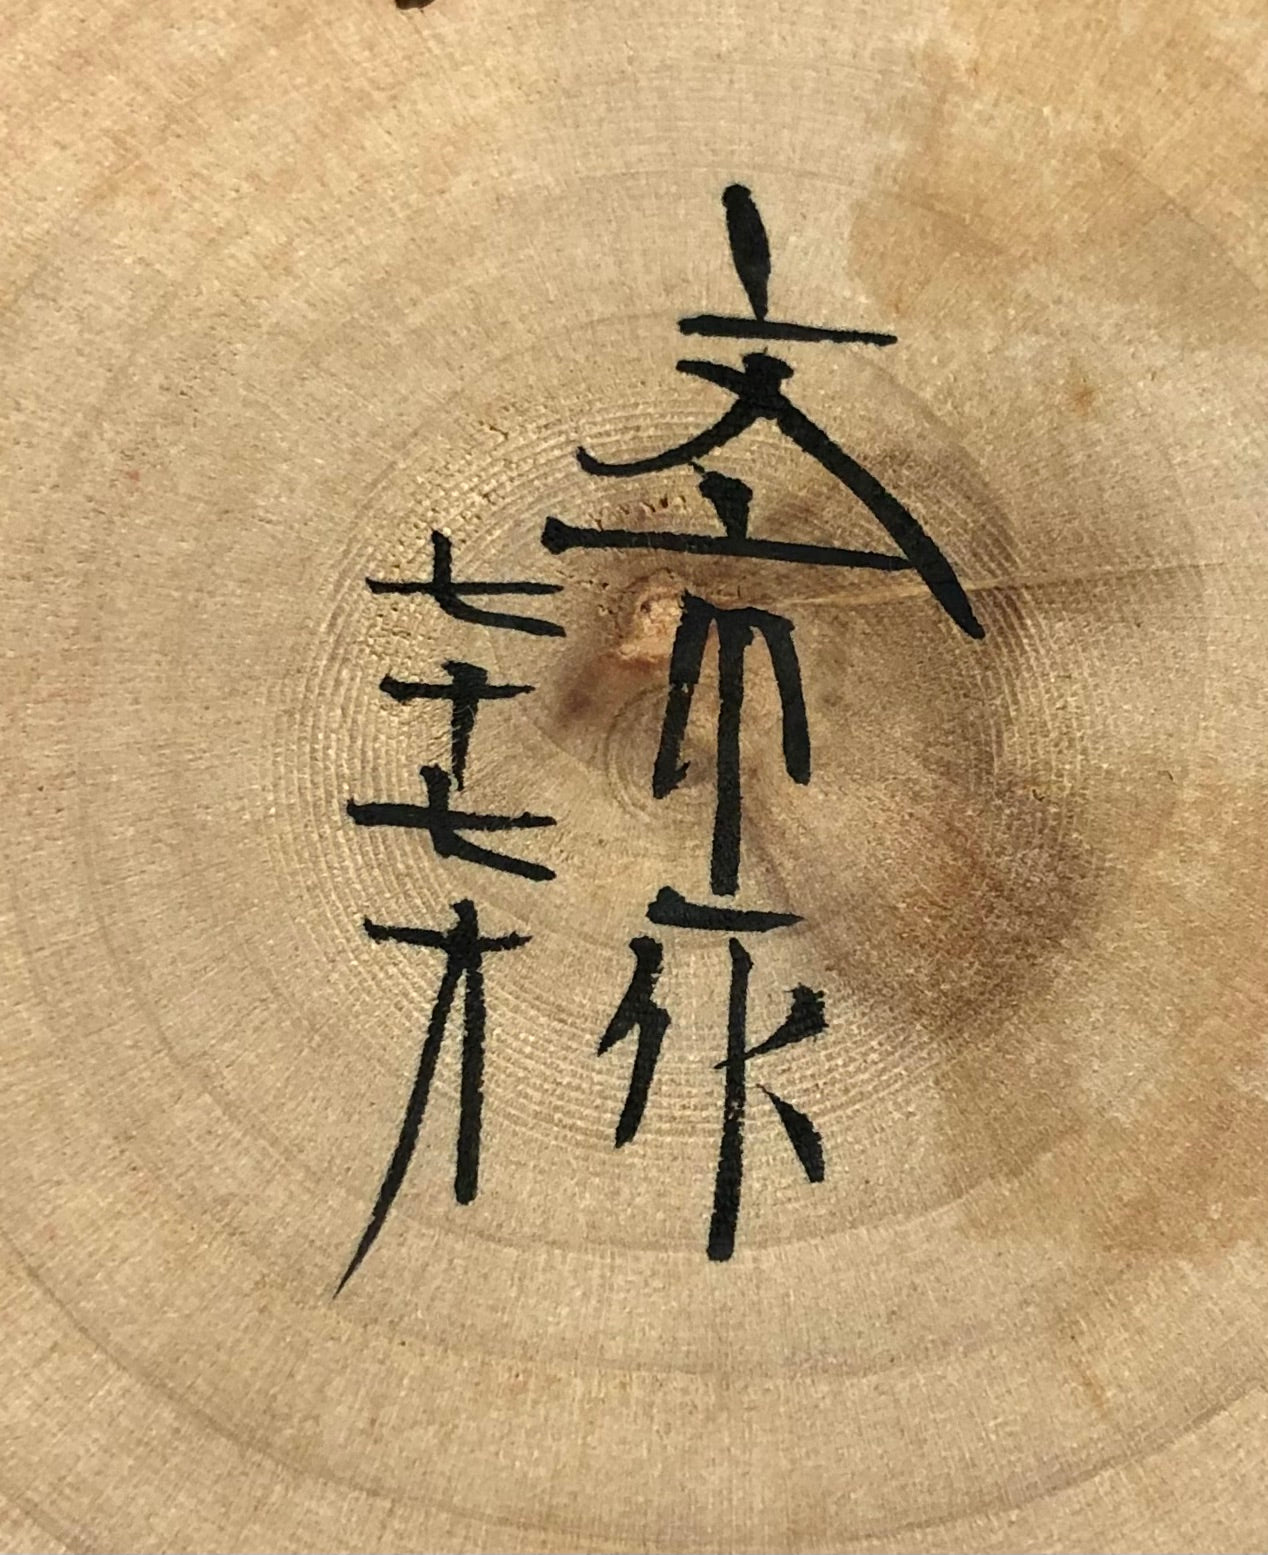 文市作
七十七才